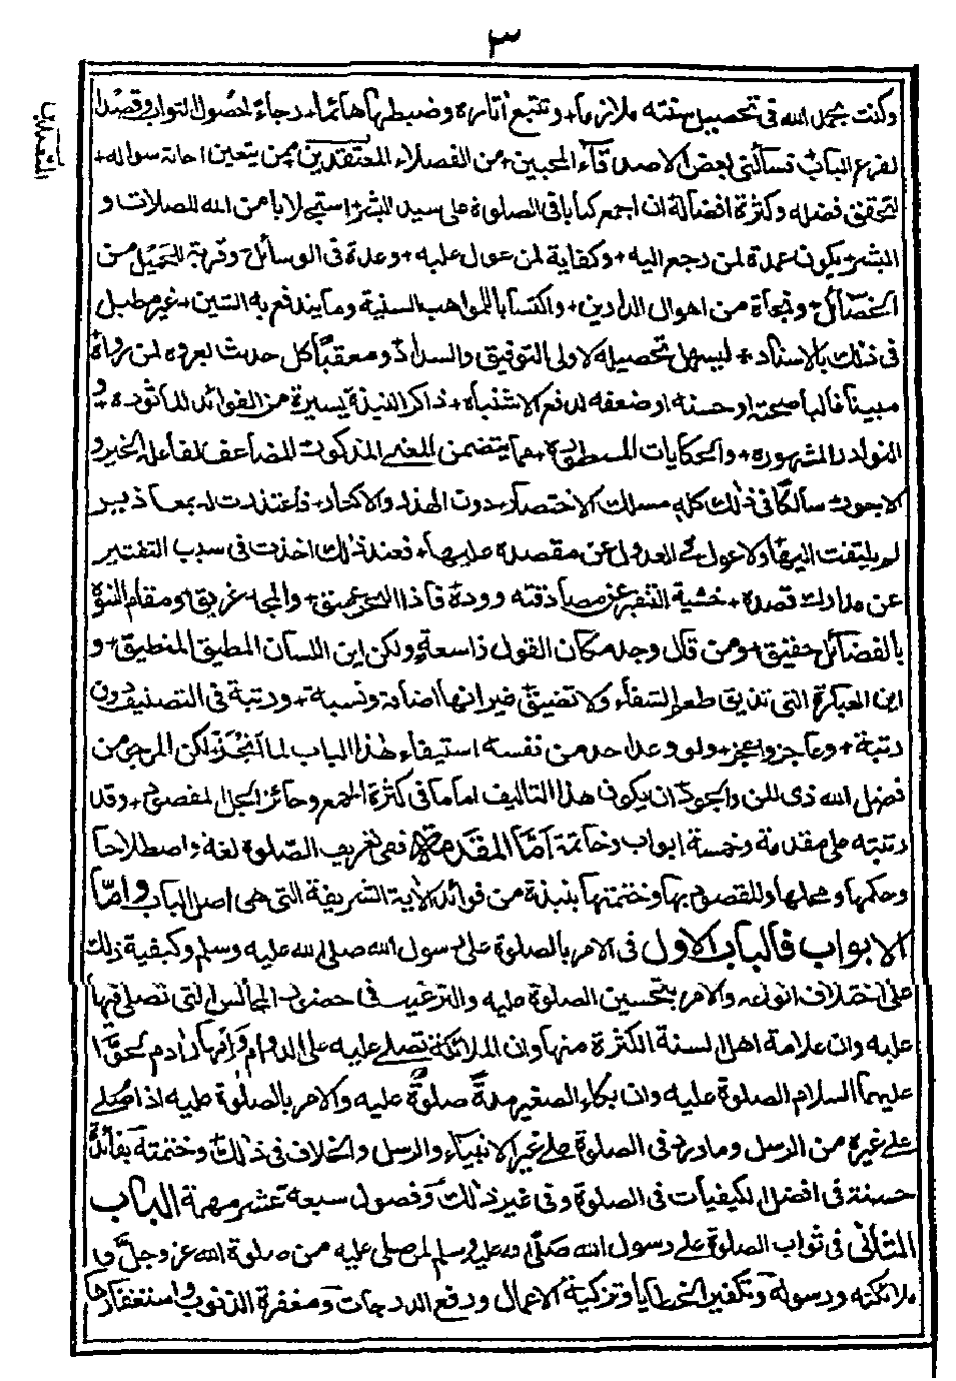 ٣
وكنت بحمد الله فى تحصيل سنته ملازما+ وتتبع آثاره وضبطها هائما+ رجاء لحصول الثواب وقصدا
لقرع الباب فسألنى بعض الاصدقآء المحبين+ من الفضلاء المعتقدين ممن يتعين اجابة سواله+
لتحقق فضله وكثرة افضاله ان اجمع كتابا فى الصلوة على سيد البشر استجلابا من الله للصلات و
البشر يكون عمدة لمن رجع اليه+ وكفاية لمن عول عليه+ وعدة فى الوسائل+ وقربة لجميل من
الخصائل+ ونجاة من اهوال الدارين+ واكتسابا للمواهب السنية وما يندفع به الشين+ غير مطيل
فى ذلك بالاسناد+ ليسهل تحصيله لاولى التوفيق والسداد ومعقبا كل حديث بعزوه لمن رواه
مبينا غالبا صحته او حسنه او ضعفه لدفع الاشتباه+ ذاكرا نبذة يسيرة من الفوائد المأثوره+ و
النوادر المشهوره+ والحكايات المسطوره+ مما يتضمن المعنى المذكور المضاعف لفاعله الخير و
الاجور سالكا فى ذلك كله مسلك الاختصار+ دون الهذر والاكثار+ فاعتذرت له بمعاذير
لم يلتفت اليها ولا عول فى العدول عن مقصده عليها+ فعند ذلك اخذت فى سبب التقتير
عن مدارك قصده+ خشية التنفير عن مصادقته ووده فاذا البحر عميق+ والمجا غريق+ ومقام النبوة
بالفضائل حقيق+ ومن قال وجد مكان القول ذا سعة+ ولكن اين اللسان المطيق المنطيق+ و
اين العبارة التى تذيق طعم الشفاء ولا تضيق غير انها اضافة ونسبة+ ورتبة فى التصنيف دون
رتبة+ وعاجز واعجز+ ولو وعد احد من نفسه استيفاء هذا الباب لما انجز لكن المرجى من
فضل الله ذى المن والجود ان يكون هذا التاليف اماما فى كثرة الجمع وحائز الجل المقصود+ وقد
رتبته على مقدمة وخمسة ابواب وخاتمة اما المقدمة ففى تعريف الصلوة لغة واصطلاحا
وحكمها ومحلها والمقصود بها وختمتها بنبذة من فوائد الاية الشريفة التى هى اصل الباب واما
الابواب فالباب الاول فى الامر بالصلوة على رسول الله صلى الله عليه وسلم وكيفية ذلك
على اختلاف انواعه والامر بتحسين الصلوة عليه والترغيب فى حضور المجالس التى تصلى فيها
عليه وان علامة اهل السنة الكثرة منها وان الملائكة تصلى عليه على الدوام وامهار ادم لحوا
عليهما السلام الصلوة عليه وان بكاء الصغير مدة صلوة عليه والامر بالصلوة عليه اذا صلى
على غيره من الرسل وما ورد فى الصلوة على غير الانبياء والرسل والخلاف فى ذلك وختمته بفائدة
حسنة فى افضل الكيفيات فى الصلوة وفى غير ذلك وفصول سبعة عشر مهمة الباب
الثانى فى ثواب الصلوة على رسول الله صلى الله عليه وسلم لمن صلى عليه من صلوة الله عز وجل و
ملائكته ورسوله وتكفير الخطايا وتزكية الاعمال ورفع الدرجات ومغفرة الذنوب واستغفارها